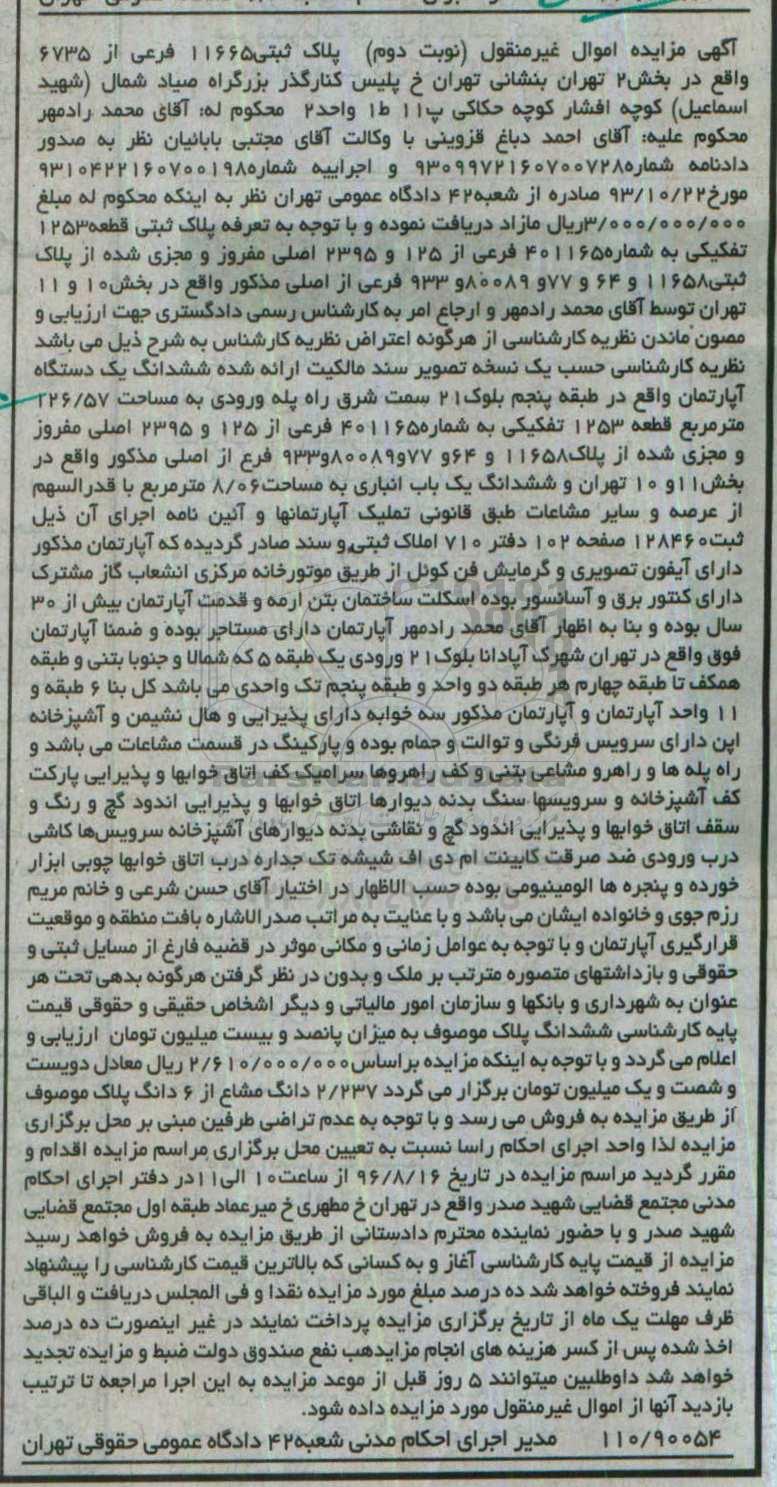 آگهی مزایده اموال غیرمنقول (نوبت دوم) پلاک ثبتی۱۱۶۶۵ فرعی از ۶۷۳۵
واقع در بخش۲ تهران بنشانی تهران خ پلیس کنارگذر بزرگراه صیاد شمال (شهید
اسماعیل) کوچه افشار کوچه حکاکی پ۱۱ ط۱ واحد۲ محکوم له: آقای محمد رادمهر
محکوم علیه: آقای احمد دباغ قزوینی با وکالت آقای مجتبی بابائیان نظر به صدور
دادنامه شماره۹۳۰۹۹۷۲۱۶۰۷۰۰۷۲۸ و اجراییه شماره۹۳۱۰۴۲۲۱۶۰۷۰۰۱۹۸
مورخ۹۳/۱۰/۲۲ صادره از شعبه۴۲ دادگاه عمومی تهران نظر به اینکه محکوم له مبلغ
۳/۰۰۰/۰۰۰/۰۰۰ریال مازاد دریافت نموده و با توجه به تعرفه پلاک ثبتی قطعه۱۲۵۳
تفکیکی به شماره۴۰۱۱۶۵ فرعی از ۱۲۵ و ۲۳۹۵ اصلی مفروز و مجزی شده از پلاک
ثبتی۱۱۶۵۸ و ۶۴ و ۷۷و ۸۰۰۸۹و ۹۳۳ فرعی از اصلی مذکور واقع در بخش۱۰ و ۱۱
تهران توسط آقای محمد رادمهر و ارجاع امر به کارشناس رسمی دادگستری جهت ارزیابی و
مصون ماندن نظریه کارشناسی از هرگونه اعتراض نظریه کارشناس به شرح ذیل می باشد
نظریه کارشناسی حسب یک نسخه تصویر سند مالکیت ارائه شده ششدانگ یک دستگاه
آپارتمان واقع در طبقه پنجم بلوک۲۱ سمت شرق راه پله ورودی به مساحت ۲۲۶/۵۷
مترمربع قطعه ۱۲۵۳ تفکیکی به شماره۴۰۱۱۶۵ فرعی از ۱۲۵ و ۲۳۹۵ اصلی مفروز
و مجزی شده از پلاک۱۱۶۵۸ و ۶۴و ۷۷و۸۰۰۸۹و۹۳۳ فرع از اصلی مذکور واقع در
بخش۱۱و ۱۰ تهران و ششدانگ یک باب انباری به مساحت۸/۰۶ مترمربع با قدرالسهم
از عرصه و سایر مشاعات طبق قانونی تملیک آپارتمانها و آئین نامه اجرای آن ذیل
ثبت۱۲۸۴۶۰ صفحه ۱۰۲ دفتر ۷۱۰ املاک ثبتی و سند صادر گردیده که آپارتمان مذکور
دارای آیفون تصویری و گرمایش فن کوئل از طریق موتورخانه مرکزی انشعاب گاز مشترک
دارای کنتور برق و آسانسور بوده اسکلت ساختمان بتن ارمه و قدمت آپارتمان بیش از ۳۰
سال بوده و بنا به اظهار آقای محمد رادمهر آپارتمان دارای مستاجر بوده و ضمنا آپارتمان
فوق واقع در تهران شهرک آپادانا بلوک۲۱ ورودی یک طبقه ۵ که شمالا و جنوبا بتنی و طبقه
همکف تا طبقه چهارم هر طبقه دو واحد و طبقه پنجم تک واحدی می باشد کل بنا ۶ طبقه و
۱۱ واحد آپارتمان و آپارتمان مذکور سه خوابه دارای پذیرایی و هال نشیمن و آشپزخانه
اپن دارای سرویس فرنگی و توالت و حمام بوده و پارکینگ در قسمت مشاعات می باشد و
راه پله ها و راهرو مشاعی بتنی و کف راهروها سرامیک کف اتاق خوابها و پذیرایی پارکت
کف آشپزخانه و سرویسها سنگ بدنه دیوارها اتاق خوابها و پذیرایی اندود گچ و رنگ و
سقف اتاق خوابها و پذیرایی اندود گچ و نقاشی بدنه دیوارهای آشپزخانه سرویس‌ها کاشی
درب ورودی ضد صرقت کابینت ام دی اف شیشه تک جداره درب اتاق خوابها چوبی ابزار
خورده و پنجره ها الومینیومی بوده حسب الاظهار در اختیار آقای حسن شرعی و خانم مریم
رزم جوی و خانواده ایشان می باشد و با عنایت به مراتب صدرالاشاره بافت منطقه و موقعیت
قرارگیری آپارتمان و با توجه به عوامل زمانی و مکانی موثر در قضیه فارغ از مسایل ثبتی و
حقوقی و بازداشتهای متصوره مترتب بر ملک و بدون در نظر گرفتن هرگونه بدهی تحت هر
عنوان به شهرداری و بانکها و سازمان امور مالیاتی و دیگر اشخاص حقیقی و حقوقی قیمت
پایه کارشناسی ششدانگ پلاک موصوف به میزان پانصد و بیست میلیون تومان ارزیابی و
اعلام می گردد و با توجه به اینکه مزایده براساس۲/۶۱۰/۰۰۰/۰۰۰ ریال معادل دویست
و شصت و یک میلیون تومان برگزار می گردد ۲/۲۳۷ دانگ مشاع از ۶ دانگ پلاک موصوف
از طریق مزایده به فروش می رسد و با توجه به عدم تراضی طرفین مبنی بر محل برگزاری
مزایده لذا واحد اجرای احکام راسا نسبت به تعیین محل برگزاری مراسم مزایده اقدام و
مقرر گردید مراسم مزایده در تاریخ ۹۶/۸/۱۶ از ساعت۱۰ الی۱۱در دفتر اجرای احکام
مدنی مجتمع قضایی شهید صدر واقع در تهران خ مطهری خ میرعماد طبقه اول مجتمع قضایی
شهید صدر و با حضور نماینده محترم دادستانی از طریق مزایده به فروش خواهد رسید
مزایده از قیمت پایه کارشناسی آغاز و به کسانی که بالاترین قیمت کارشناسی را پیشنهاد
نمایند فروخته خواهد شد ده درصد مبلغ مورد مزایده نقدا و فی المجلس دریافت و الباقی
ظرف مهلت یک ماه از تاریخ برگزاری مزایده پرداخت نمایند در غیر اینصورت ده درصد
اخذ شده پس از کسر هزینه های انجام مزایدهب نفع صندوق دولت ضبط و مزایده تجدید
خواهد شد داوطلبین میتوانند ۵ روز قبل از موعد مزایده به این اجرا مراجعه تا ترتیب
بازدید آنها از اموال غیرمنقول مورد مزایده داده شود.
۱۱۰/۹۰۰۵۴ مدیر اجرای احکام مدنی شعبه۴۲ دادگاه عمومی حقوقی تهران